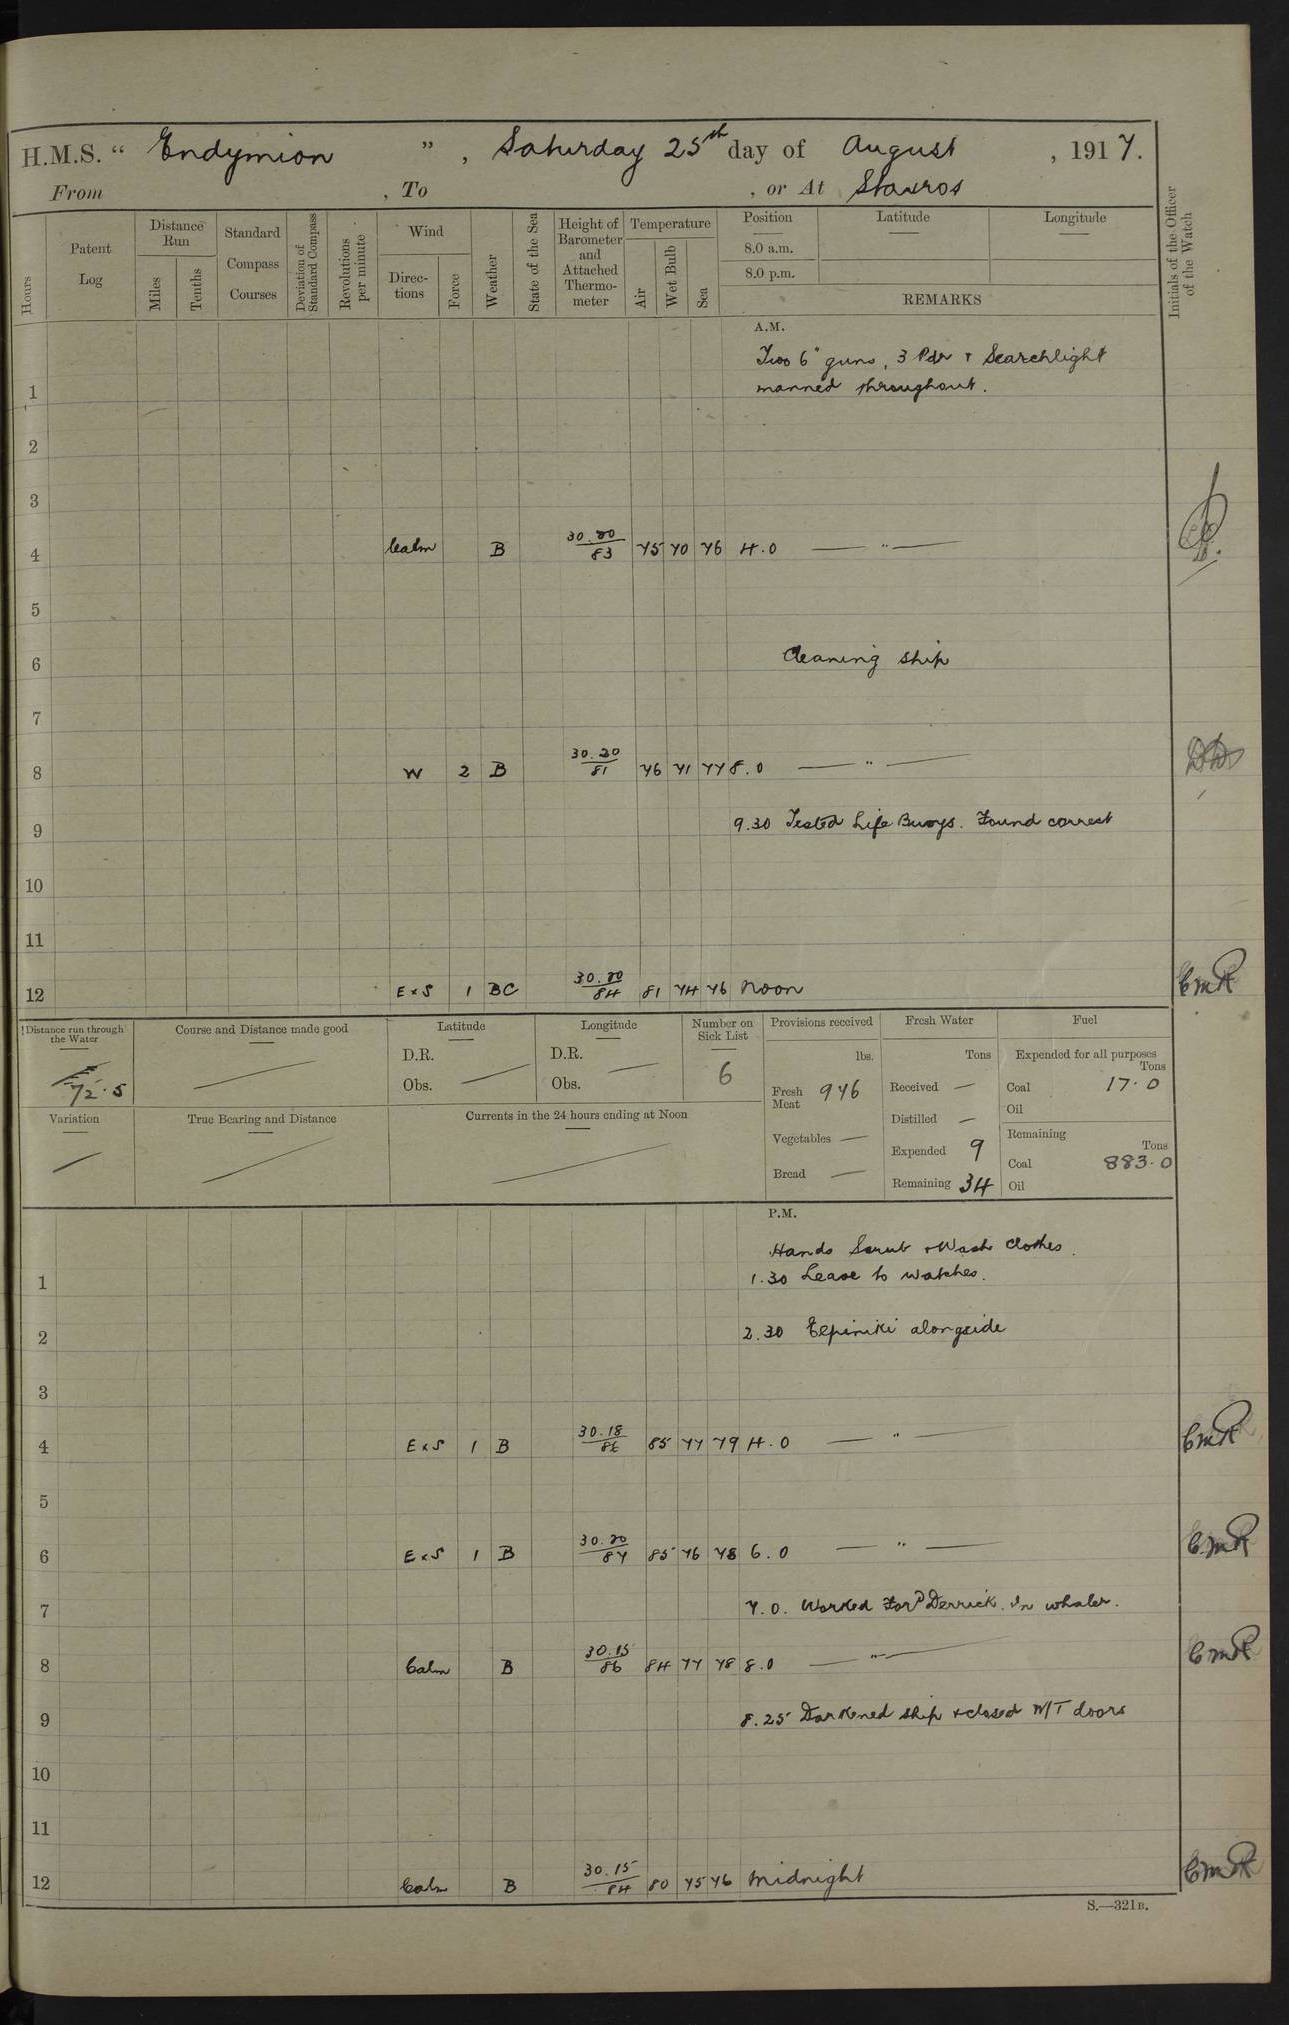 H.M.S. “ Endymion ” , Saturday 25th day of August , 1917.
From , To , or At Stavros
Hours
Patent Log
Distance Run
Miles
Tenths
Standard Compass Courses
Deviation of Standard Compass
Revolutions per minute
Wind
Direc-tions
Force
Weather
State of the Sea
Height of Barometer and Attached Thermo-meter
Temperature
Air
Wet Bulb
Sea
Position
8.0 a.m.
8.0 p.m.
Latitude
Longitude
REMARKS
Initials of the Officer of the Watch
A.M.
Two 6" guns, 3 Pdr + Searchlight
1 manned throughout.
2
3
4 Calm B 30.20/83 75 70 76 4.0 — " —
5
6 Cleaning ship
7
8 W 2 B 30.20/81 76 71 77 8.0 — " —
9 9.30 Tested Life Buoys. Found correct
10
11
12 E x S 1 BC 30.20/84 81 74 76 Noon CMR
Distance run through the Water
72.5
Course and Distance made good
Latitude
D.R.
Obs.
Longitude
D.R.
Obs.
Number on Sick List
6
Provisions received
lbs.
Fresh Meat 976
Vegetables —
Bread —
Fresh Water
Tons
Received —
Distilled —
Expended 9
Remaining 34
Fuel
Expended for all purposes
Tons
Coal 17.0
Oil
Remaining
Tons
Coal 883.0
Oil
Variation
True Bearing and Distance
Currents in the 24 hours ending at Noon
P.M.
Hands Scrub + Wash clothes.
1 1.30 Leave to watches.
2 2.30 Elpiniki alongside
3
4 E x S 1 B 30.18/86 85 77 79 4.0 — " — CMR
5
6 E x S 1 B 30.20/87 85 76 78 6.0 — " — CMR
7 7.0. Worked Ford Derrick. In whaler.
8 Calm B 30.15/86 84 77 78 8.0 — " — CMR
9 8.25 Darkened ship + closed W/T doors
10
11
12 Calm B 30.15/84 80 75 76 Midnight CMR
S.—321B.